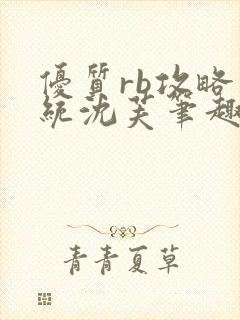 優質rb攻略
統沈芙筆趣
青青夏草